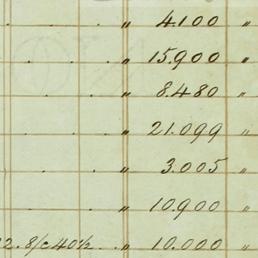 " 4.100 "
. . . " 15.900 "
. . . " 8.480 "
. . . " 21.099 "
. . . " 3.005 "
. . . " 10.900 "
2. 8/c 40½ . . " 10.000 "